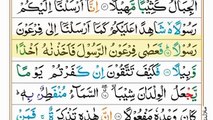 الْجِبَالُ كَثِيْبًا مَّهِيْلًا ۝ اِنَّاۤ اَرْسَلْنَاۤ اِلَيْكُمْ
رَسُوْلًا ۙ شَاهِدًا عَلَيْكُمْ كَمَاۤ اَرْسَلْنَاۤ اِلٰى فِرْعَوْنَ
رَسُوْلًا ۝ فَعَصٰى فِرْعَوْنُ الرَّسُوْلَ فَاَخَذْنٰهُ اَخْذًا
وَّبِيْلًا ۝ فَكَيْفَ تَتَّقُوْنَ اِنْ كَفَرْتُمْ يَوْمًا
يَّجْعَلُ الْوِلْدَانَ شِيْبَا ۝ السَّمَآءُ مُنْفَطِرٌۢ بِهٖ ؕ
كَانَ وَعْدُهٗ مَفْعُوْلًا ۝ اِنَّ هٰذِهٖ تَذْكِرَةٌ ۚ